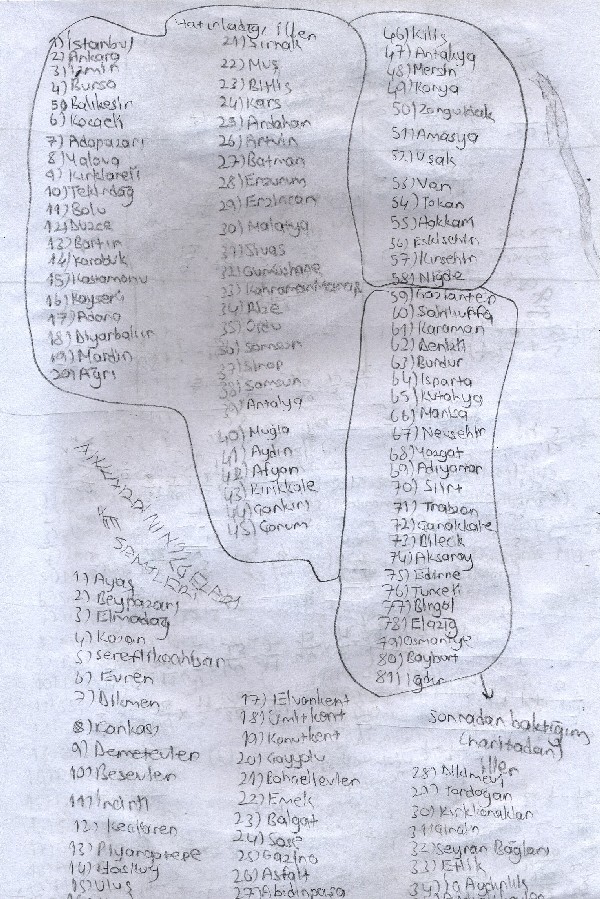 Hatırladığı iller
1) İstanbul
2) Ankara
3) İzmir
4) Bursa
5) Balıkesir
6) Kocaeli
7) Adapazarı
8) Yalova
9) Kırklareli
10) Tekirdağ
11) Bolu
12) Düzce
13) Bartın
14) Karabük
15) Kastamonu
16) Kayseri
17) Adana
18) Diyarbakır
19) Mardin
20) Ağrı
21) Şırnak
22) Muş
23) Bitlis
24) Kars
25) Ardahan
26) Artvin
27) Batman
28) Erzurum
29) Erzincan
30) Malatya
31) Sivas
32) Gümüşhane
33) Kahramanmaraş
34) Rize
35) Ordu
36) Samsun
37) Sinop
38) Samsun
39) Antalya
40) Muğla
41) Aydın
42) Afyon
43) Kırıkkale
44) Çankırı
45) Çorum
46) Kilis
47) Antakya
48) Mersin
49) Konya
50) Zonguldak
51) Amasya
52) Uşak
53) Van
54) Tokan
55) Hakkari
56) Eskişehir
57) Kırşehir
58) Niğde
59) Gaziantep
60) Şanlıurfa
61) Karaman
62) Denizli
63) Burdur
64) Isparta
65) Kütahya
66) Manisa
67) Nevşehir
68) Yozgat
69) Adıyaman
70) Siirt
71) Trabzon
72) Çanakkale
73) Bilecik
74) Aksaray
75) Edirne
76) Tunceli
77) Bingöl
78) Elazığ
79) Osmaniye
80) Bayburt
81) Iğdır
sonradan baktığım
(haritadan)
iller
ANKARA'NIN İLÇELERİ
SEMTLERİ
1) Ayaş
2) Beypazarı
3) Elmadağ
4) Kazan
5) Şereflikoçhisar
6) Evren
7) Dikmen
8) Çankaya
9) Demetevler
10) Beşevler
11) İncirli
12) Keçiören
13) Piyangotepe
14) Hasköy
15) Ulus
17) Elvankent
18) Ümitkent
19) Konutkent
20) Çayyolu
21) Bahçelievler
22) Emek
23) Balgat
25) Gazino
26) Asfalt
27) Abidinpaşa
28) Dikimevi
29) Tandoğan
30) Kırkkonaklar
32) Seyran Bağları
33) Etlik
34) Aydınlık